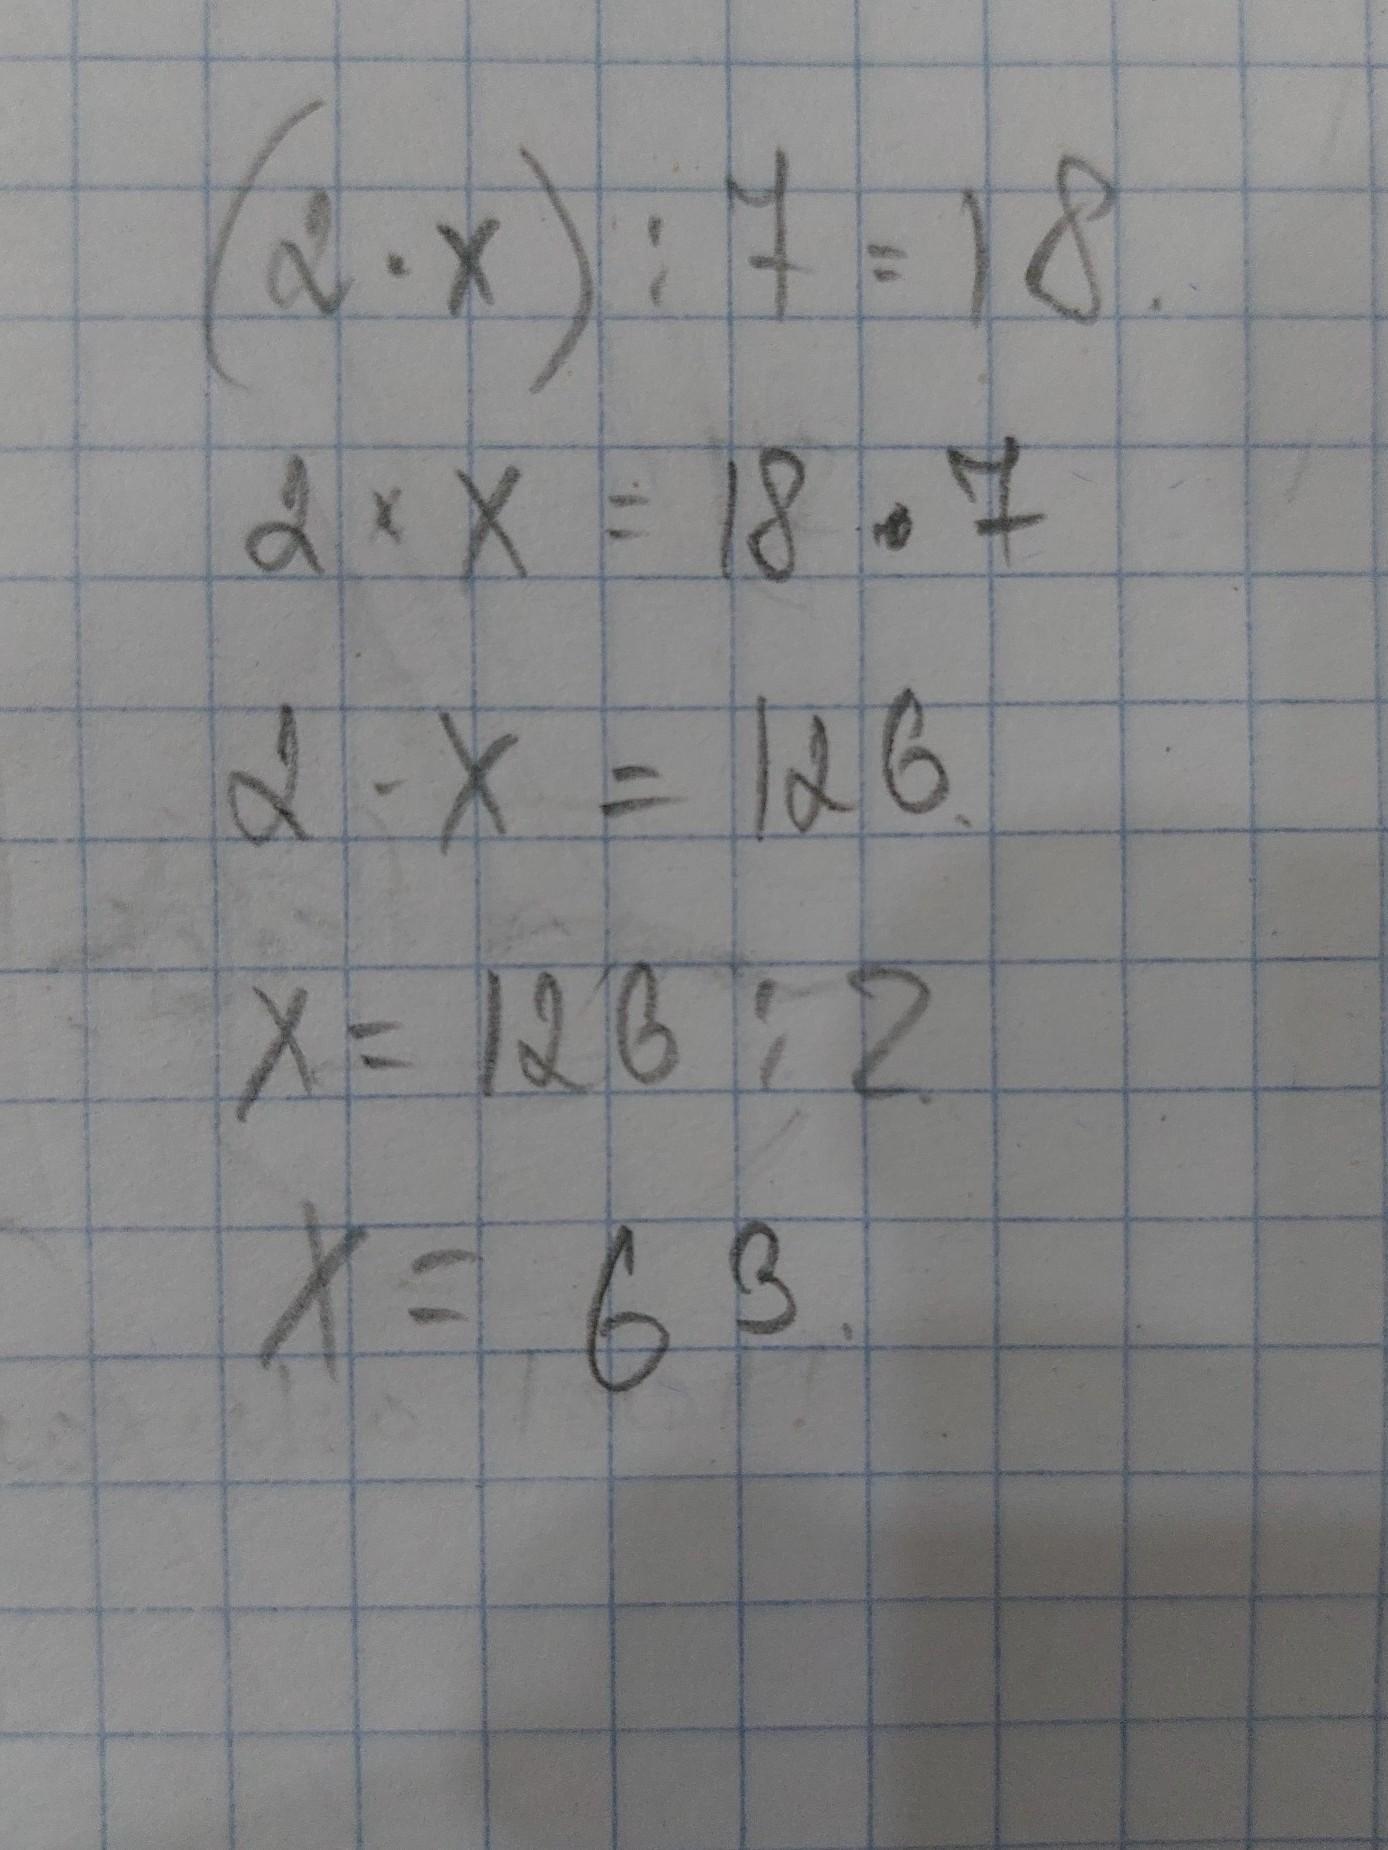 (2 · x) : 7 = 18.
2 × x = 18 · 7
2 - x = 126.
x = 126 : 2.
x = 63.